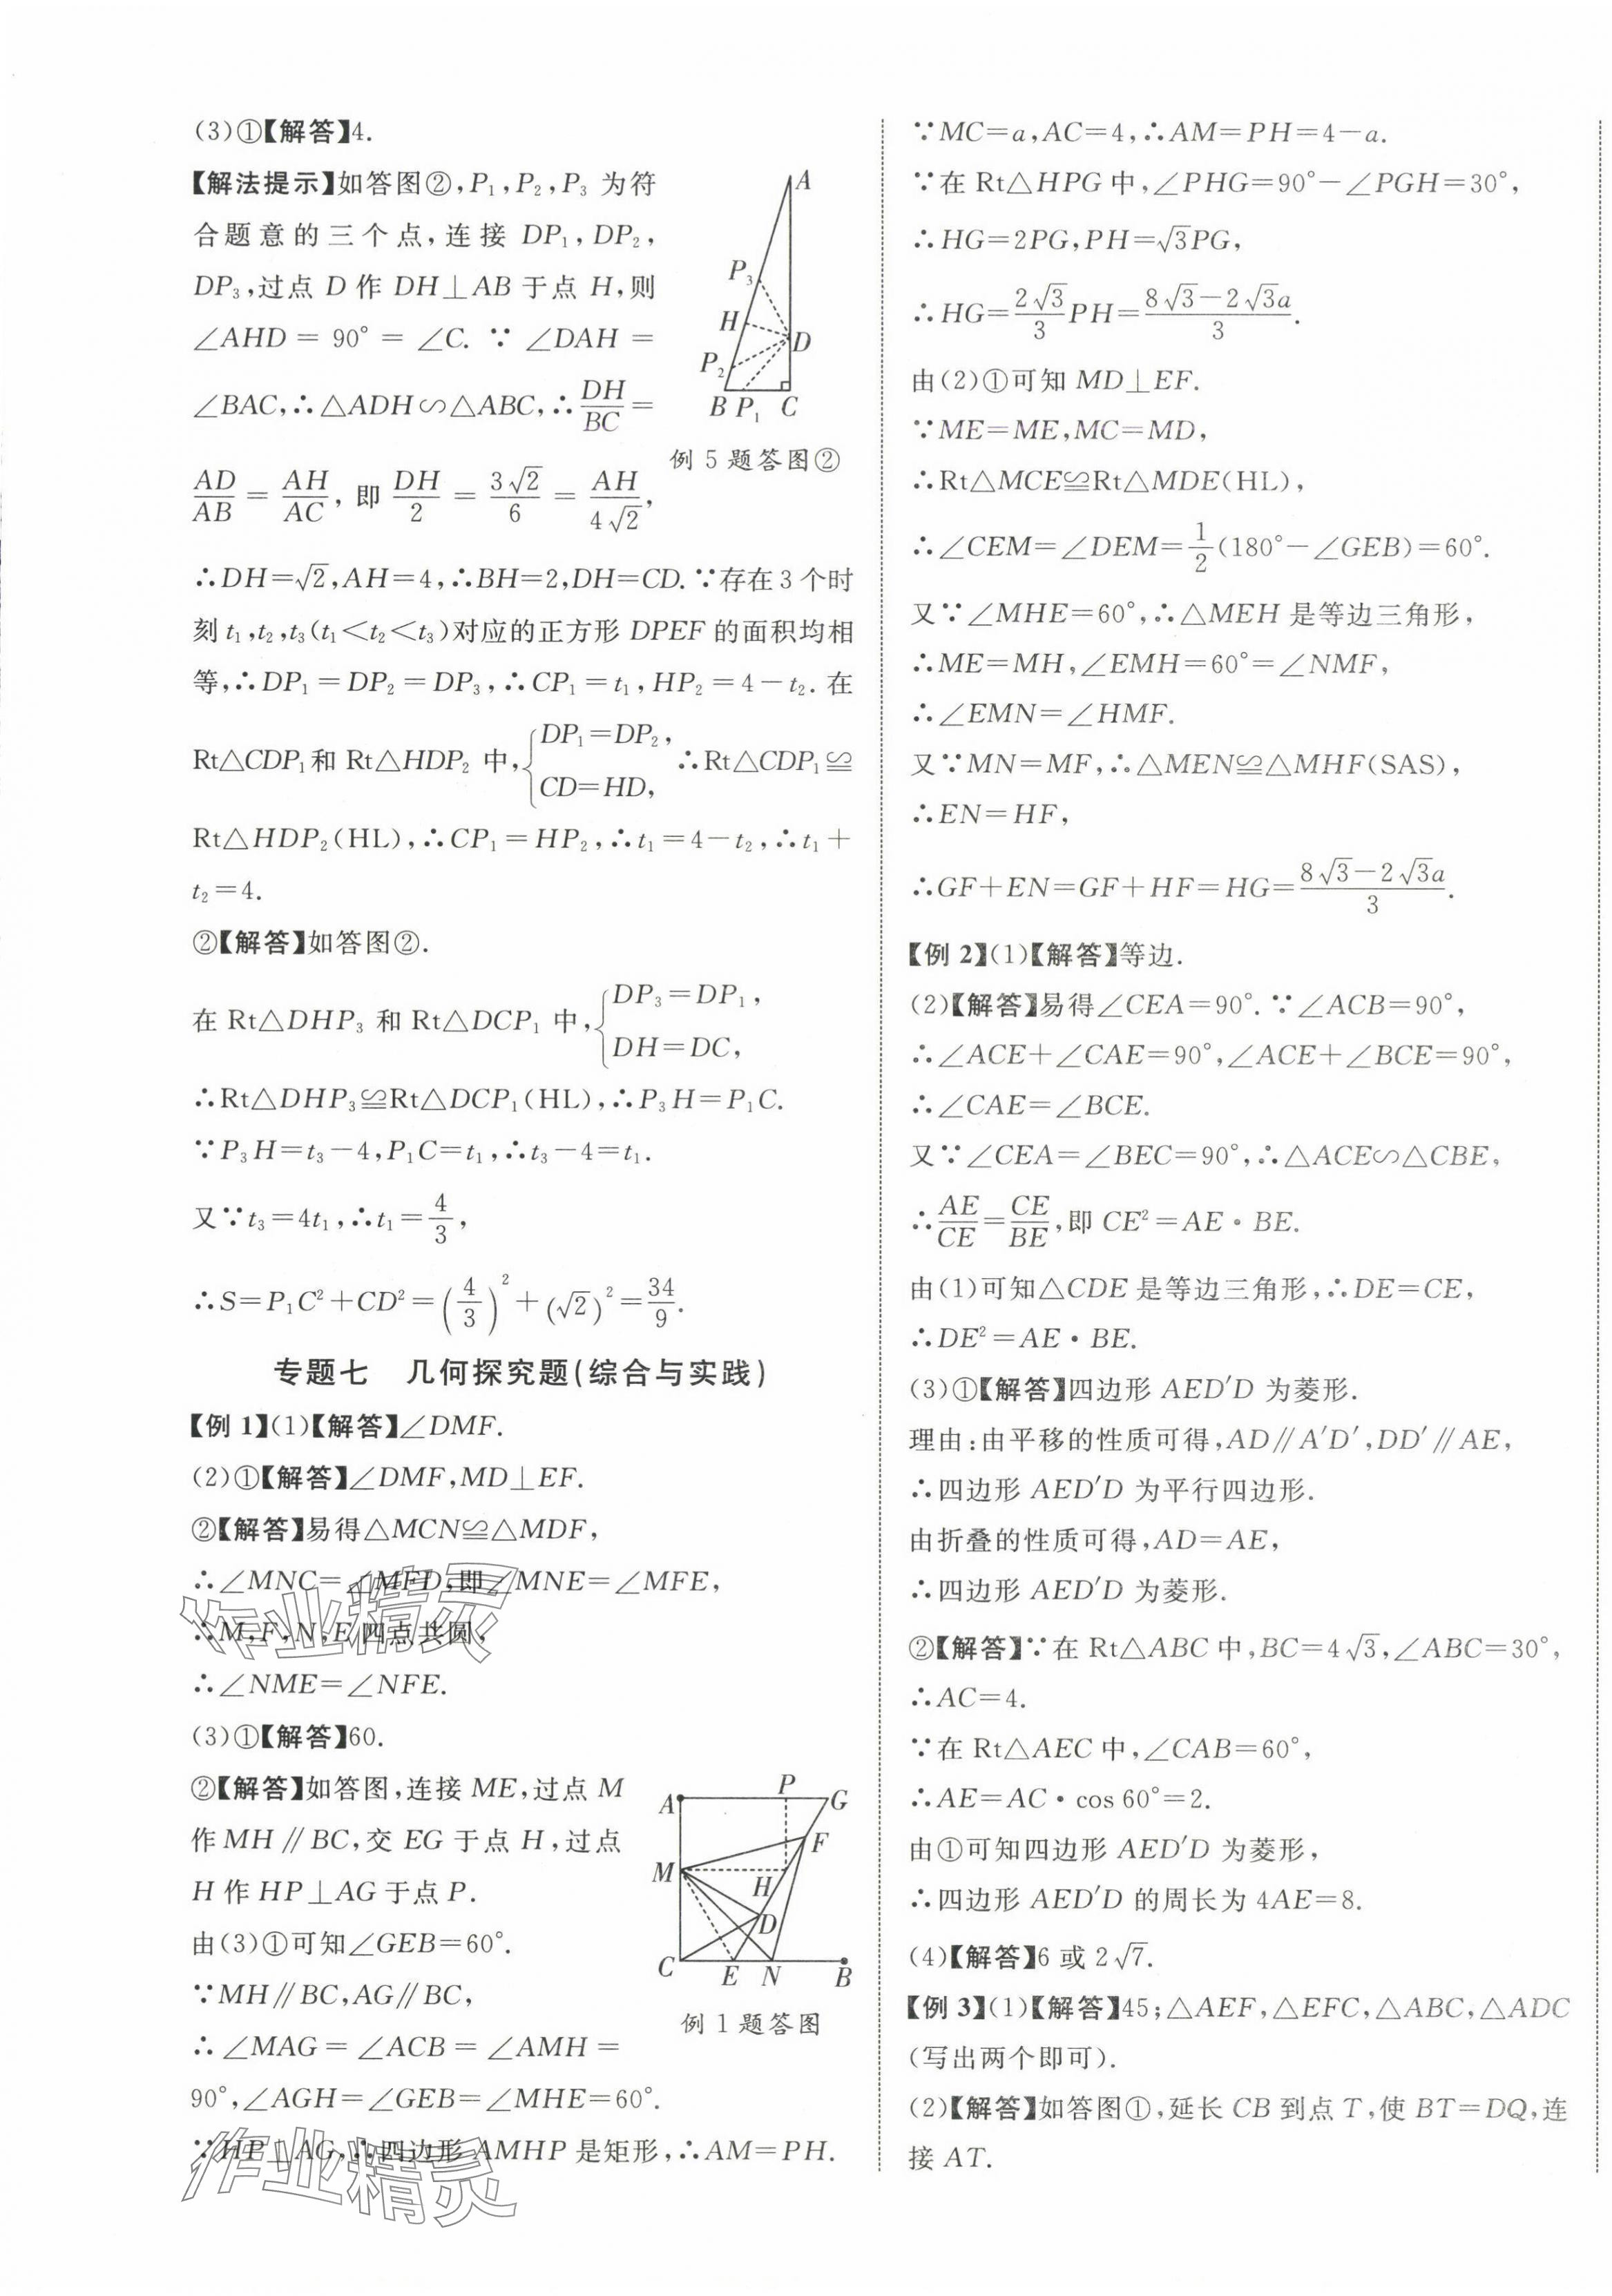 (3)①【解答】4.
【解法提示】如答图②,P₁,P₂,P₃ 为符
合题意的三个点,连接 DP₁,DP₂,
DP₃,过点 D 作 DH⊥AB 于点 H,则
∠AHD = 90° = ∠C. ∵ ∠DAH =
∠BAC,∴△ADH∽△ABC,∴DH/BC=
AD/AB = AH/AC, 即 DH/2 = 3√2/6 = AH/4√2,
A
P₃
H
D
P₂
B P₁ C
例 5 题答图②
∴DH=√2,AH=4,∴BH=2,DH=CD.∵存在3个时
刻 t₁,t₂,t₃(t₁<t₂<t₃)对应的正方形 DPEF 的面积均相
等,∴DP₁=DP₂=DP₃,∴CP₁=t₁,HP₂=4-t₂. 在
Rt△CDP₁和 Rt△HDP₂ 中,{DP₁=DP₂, CD=HD, ∴Rt△CDP₁≌
Rt△HDP₂(HL),∴CP₁=HP₂,∴t₁=4-t₂,∴t₁+
t₂=4.
②【解答】如答图②.
在 Rt△DHP₃ 和 Rt△DCP₁ 中,{DP₃=DP₁, DH=DC,
∴Rt△DHP₃≌Rt△DCP₁(HL),∴P₃H=P₁C.
∵P₃H=t₃-4,P₁C=t₁,∴t₃-4=t₁.
又∵t₃=4t₁,∴t₁=4/3,
∴S=P₁C²+CD²=(4/3)²+(√2)²=34/9.
专题七 几何探究题(综合与实践)
【例 1】(1)【解答】∠DMF.
(2)①【解答】∠DMF,MD⊥EF.
②【解答】易得△MCN≌△MDF,
∴∠MNC=∠MFD,即∠MNE=∠MFE,
∴M,F,N,E四点共圆,
∴∠NME=∠NFE.
(3)①【解答】60.
②【解答】如答图,连接 ME,过点 M
作 MH∥BC,交 EG 于点 H,过点
H 作 HP⊥AG 于点 P.
由(3)①可知∠GEB=60°.
∵MH∥BC,AG∥BC,
∴∠MAG=∠ACB=∠AMH=
A P G
F
M
H
D
C E N B
例 1 题答图
90°,∠AGH=∠GEB=∠MHE=60°.
∵HP⊥AG,∴四边形 AMHP 是矩形,∴AM=PH.
作业精灵
作业精灵
∵MC=a,AC=4,∴AM=PH=4-a.
∵在 Rt△HPG 中,∠PHG=90°-∠PGH=30°,
∴HG=2PG,PH=√3PG,
∴HG=2√3/3PH=(8√3-2√3a)/3.
由(2)①可知 MD⊥EF.
∵ME=ME,MC=MD,
∴Rt△MCE≌Rt△MDE(HL),
∴∠CEM=∠DEM=1/2(180°-∠GEB)=60°.
又∵∠MHE=60°,∴△MEH 是等边三角形,
∴ME=MH,∠EMH=60°=∠NMF,
∴∠EMN=∠HMF.
又∵MN=MF,∴△MEN≌△MHF(SAS),
∴EN=HF,
∴GF+EN=GF+HF=HG=(8√3-2√3a)/3.
【例 2】(1)【解答】等边.
(2)【解答】易得∠CEA=90°.∵∠ACB=90°,
∴∠ACE+∠CAE=90°,∠ACE+∠BCE=90°,
∴∠CAE=∠BCE.
又∵∠CEA=∠BEC=90°,∴△ACE∽△CBE,
∴AE/CE=CE/BE,即 CE²=AE·BE.
由(1)可知△CDE 是等边三角形,∴DE=CE,
∴DE²=AE·BE.
(3)①【解答】四边形 AED′D 为菱形.
理由:由平移的性质可得,AD∥A′D′,DD′∥AE,
∴四边形 AED′D 为平行四边形.
由折叠的性质可得,AD=AE,
∴四边形 AED′D 为菱形.
②【解答】∵在 Rt△ABC 中,BC=4√3,∠ABC=30°,
∴AC=4.
∵在 Rt△AEC 中,∠CAB=60°,
∴AE=AC·cos 60°=2.
由①可知四边形 AED′D 为菱形,
∴四边形 AED′D 的周长为 4AE=8.
(4)【解答】6 或 2√7.
【例 3】(1)【解答】45;△AEF,△EFC,△ABC,△ADC
(写出两个即可).
(2)【解答】如答图①,延长 CB 到点 T,使 BT=DQ,连
接 AT.